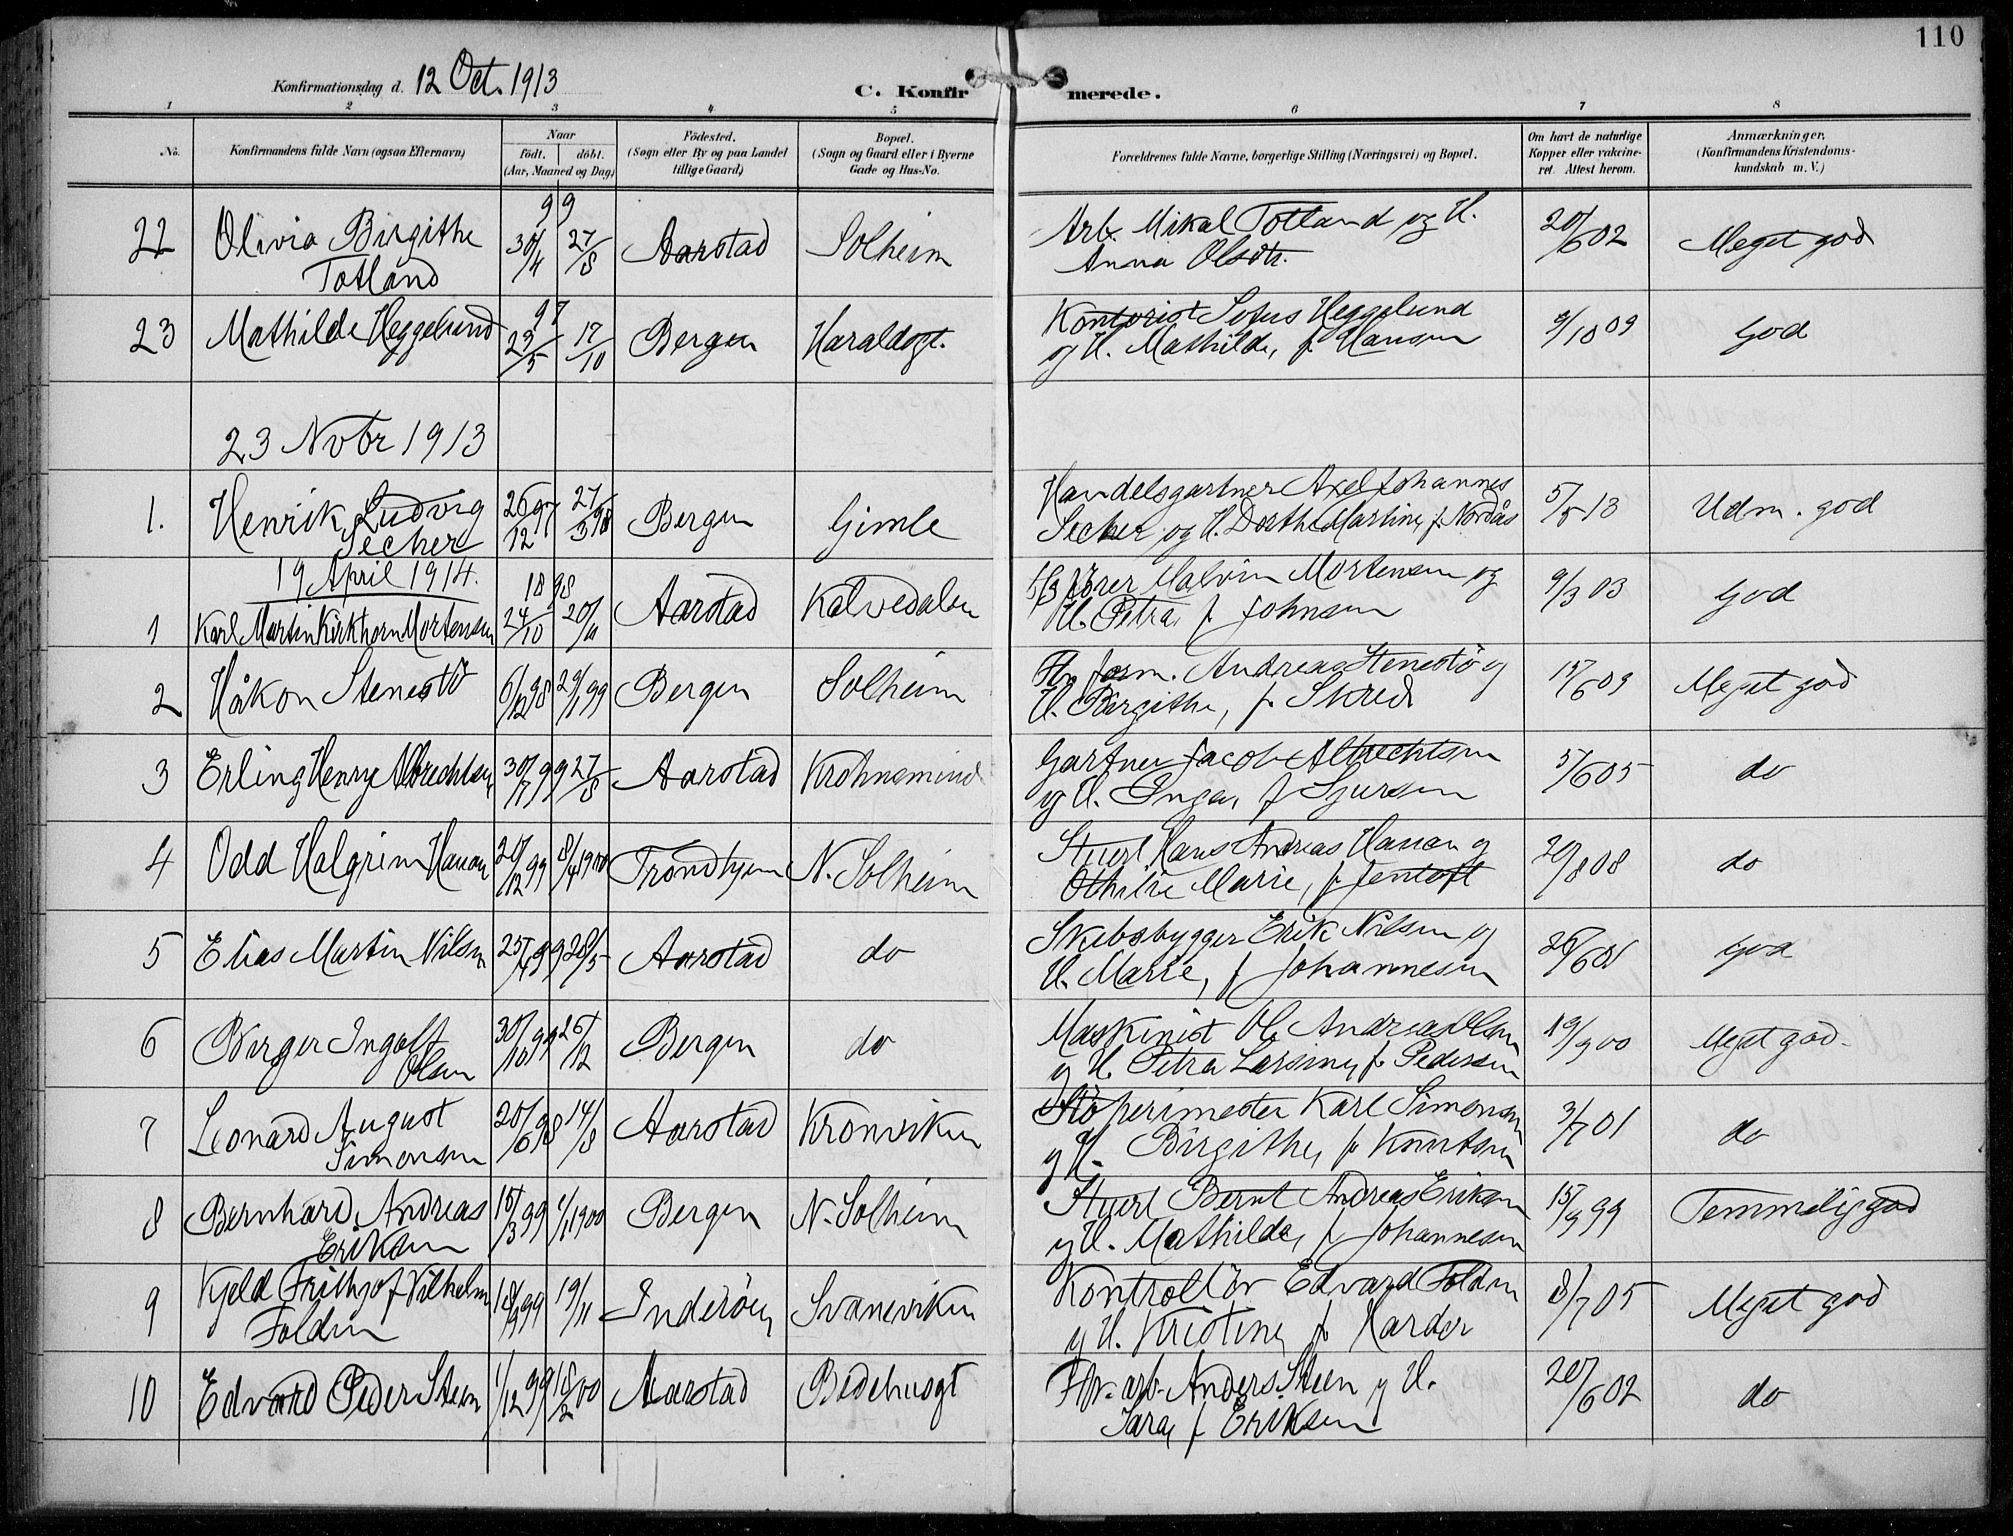 110
Konfirmationsdag d. 12 Oct. 1913
C. Konfirmerede.
1 2 3 4 5 6 7 8
No.
Konfirmandens fulde Navn (ogsaa Efternavn)
Naar
födt. döbt.
(Aar, Maaned og Dag)
Födested.
(Sogn eller By og paa Landet
tillige Gaard)
Bopæl.
(Sogn og Gaard eller i Byerne
Gade og Hus-No.
Forældrenes fulde Navne, borgerlige Stilling (Næringsvei) og Bopæl.
Om havt de naturlige
Kopper eller vakcine-
ret. Attest herom.
Anmærkninger.
(Konfirmandens Kristendoms-
kundskab m. V.)
22 Olivia Birgithe Totland 99 30/4 27/8 Aarstad Solheim
Arb. Mikal Totland og H. Anna Olsdtr. 20/6 02 Meget god
23 Mathilde Heggelund 97 23/5 17/10 Bergen Haraldsgt.
Kontorist Sofus Heggelund og H. Mathilde, f Hansen 9/10 09 God
23 Novbr 1913
1. Henrik Ludvig Secher 26/12 97 27/3 98 Bergen Gimle
Handelsgartner Axel Johannes Secher og H. Dorthe Martine, f. Nordås 5/5 13 Udm. god
19 April 1914.
1 Karl Martin Kirkhorn Mortensen 1898 24/10 20/11 Aarstad Kalvedalen
Malvin Mortensen og H. Petra, f Johnsen 9/3 03 God
2 Håkon Stenestö 6/12 98 29/1 99 Bergen Solheim
form. Andreas Stenestö og H. Birgithe, f. Skred 15/6 09 Meget god
3 Erling Henry Albrechtsen 30/7 99 27/8 Aarstad Krohnsminde
Gartner Jacob Albrechtsen og H. Inga, f Sjursen 5/6 05 do
4 Odd Halgrim Hansen 20/12 99 8/4 1900 Trondhjem N. Solheim
Styerl Hans Andreas Hansen og Othilie Marie, f. Jentoft 20/8 08 do
5 Elias Martin Nilsen 25/4 99 28/5 Aarstad do
Skibsbygger Erik Nilsen og H. Marie, f Johannesen 26/6 01 God
6 Birger Ingolf Olsen 30/10 99 26/12 Bergen do
Maskinist Ole Andreas Olsen og H. Petra Larsine, f. Pedersen 19/9 00 Meget god.
7 Leonard August Simonsen 20/6 98 14/8 Aarstad Kronviken
Stöperimester Karl Simonsen og H. Birgithe, f Knutsen 3/7 01 do
8 Bernhard Andreas Eriksen 15/3 99 1/1 1900 Bergen N. Solheim
Styerl Bernt Andreas Eriksen og H. Mathilde, f Johannesen 15/9 99 Temmelig god
9 Kjeld Frithjof Vilhelm Foldin 18/9 99 19/11 Inderöen Svaneviken
Kontrollör Edvard Foldin og H. Kristine, f Harder 8/7 05 Meget god
10 Edvard Peder Steen 1/12 99 18/2 00 Aarstad Bedehusgt
arb. Anders Steen og H. Sara, f Eriksen 20/6 02 do